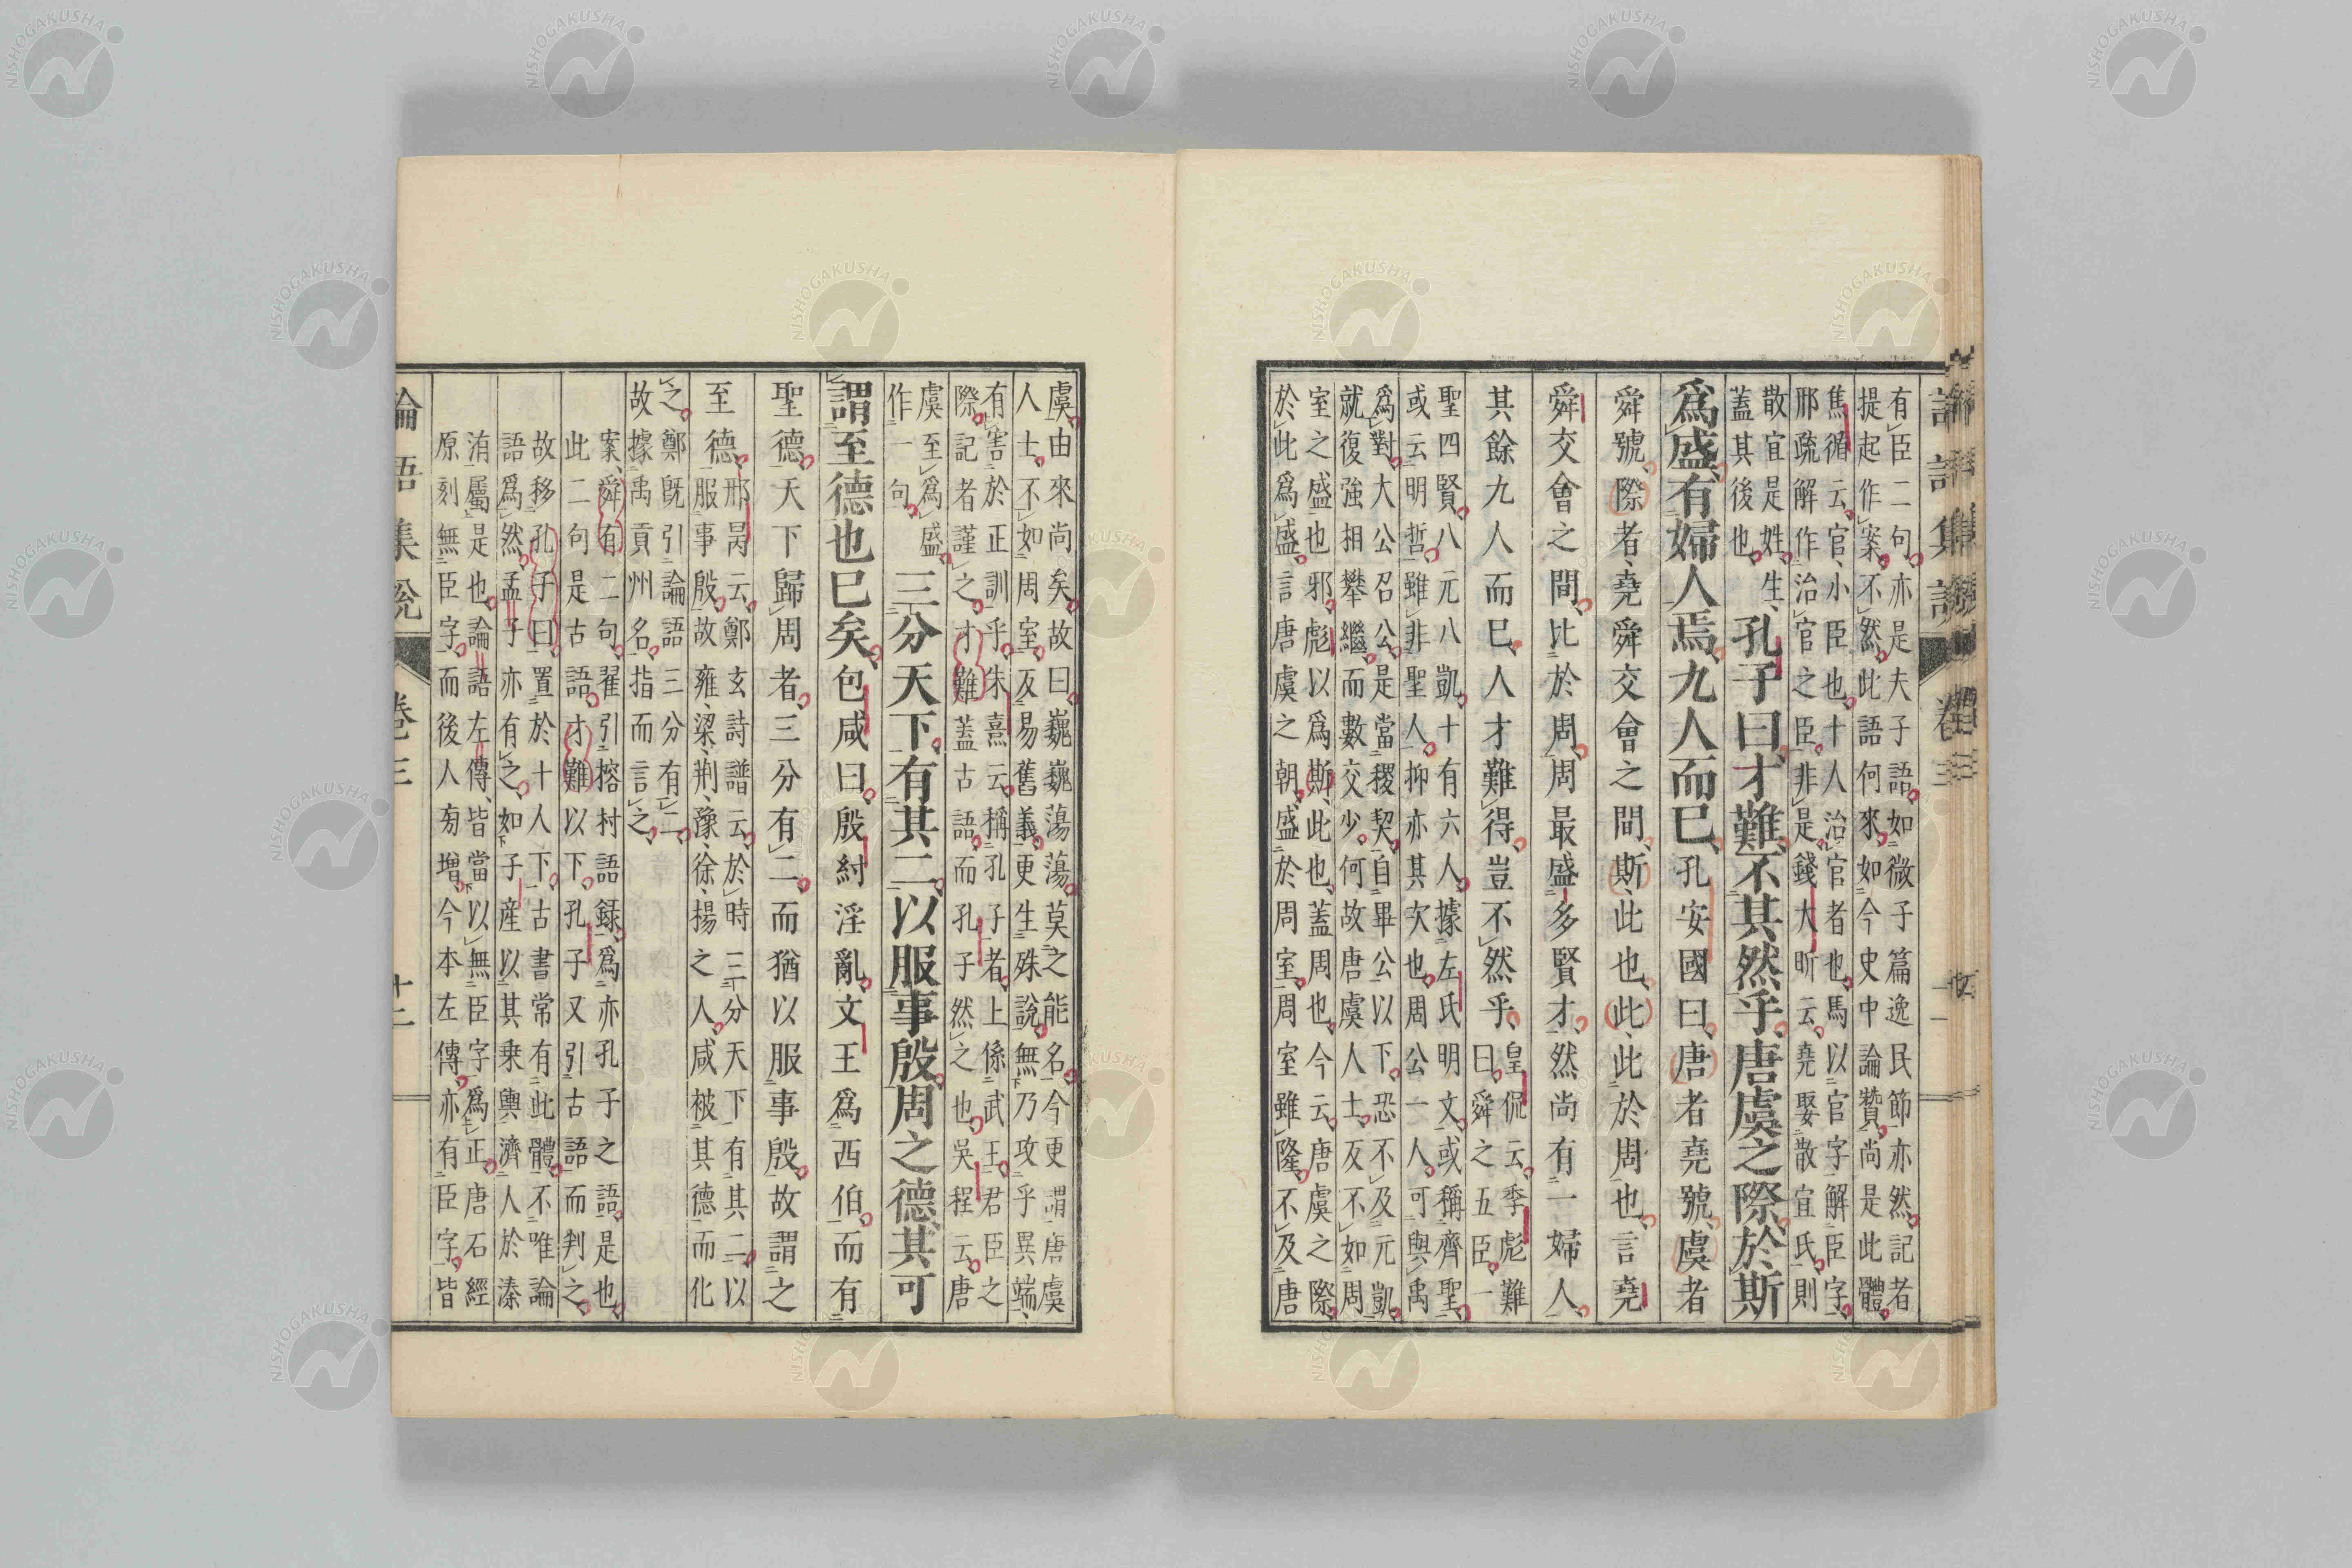 論語集說 卷三
有臣二句亦是夫子語如微子篇逸民節亦然記者
提起作案不然此語何來如今史中論贊尚是此體
焦循云官小臣也十人治官者也馬以官字解臣字
邢疏解作治官之臣非是錢大昕云堯娶散宜氏則
散宜是姓生
蓋其後也
孔子曰才難不其然乎唐虞之際於斯
爲盛有婦人焉九人而已孔安國曰唐者堯號虞者
舜號際者堯舜交會之間斯此也此此於周也言堯
舜交會之間比於周周最盛多賢才然尚有一婦人
其餘九人而已人才難得豈不然乎
皇侃云季彪難
曰舜之五臣一
聖四賢八元八凱十有六人據左氏明文或稱齊聖
或云明哲雖非聖人抑亦其次也周公一人可與禹
爲對大公召公是當稷契自畢公以下恐不及元凱
就復強相攀繼而數交少何故唐虞人士反不如周
室之盛也邪彪以爲斯此也蓋周也今云唐虞之際
於此爲盛言唐虞之朝盛於周室周室雖隆不及唐
虞由來尚矣故曰巍巍蕩蕩莫之能名今更謂唐虞
人士不如周室反易舊義更生殊說無乃攻乎異端
有害於正訓乎朱熹云稱孔子者上係武王君臣之
際記者謹之才難蓋古語而孔子然之也吳程云唐
虞至爲盛
作一句
三分天下有其二以服事殷周之德其可
謂至德也已矣包咸曰殷紂淫亂文王爲西伯而有
聖德天下歸周者三分有二而猶以服事殷故謂之
至德
邢昺云鄭玄詩譜云於時三分天下有其二以
服事殷故雍梁荆豫徐揚之人咸被其德而化
之鄭既引論語三分有二
故據禹貢州名指而言之
案舜有二句翟引榕村語録爲亦孔子之語是也
此二句是古語才難以下孔子又引古語而判之
故移孔子曰置於十人下古書常有此體不唯論
語爲然孟子亦有之如子産以其乗輿濟人於溱
洧屬是也論語左傳皆當以無臣字爲正唐石經
原刻無臣字而後人旁增今本左傳亦有臣字皆
論語集說 卷三 十二
NISHOGAKUSHA